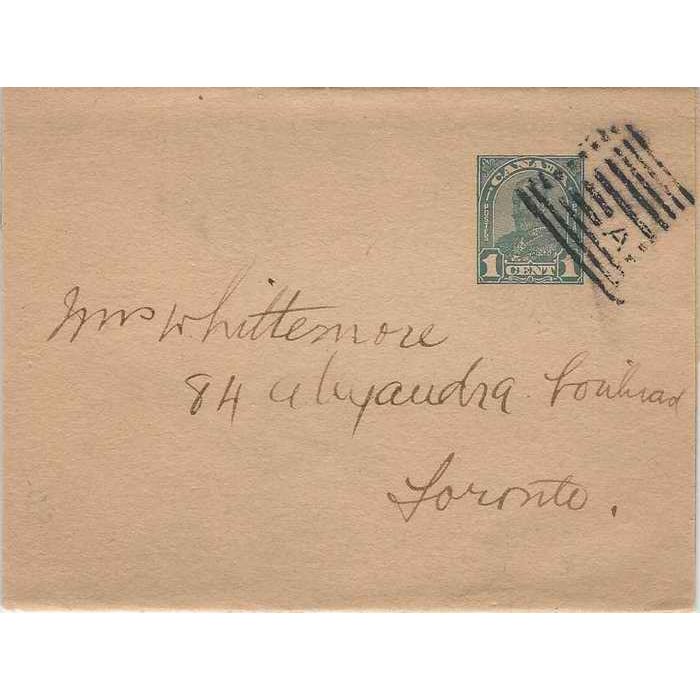 CANADA
POSTES
1 CENT 1
A
Mrs Whittemore
84 Alexandra
Toronto.